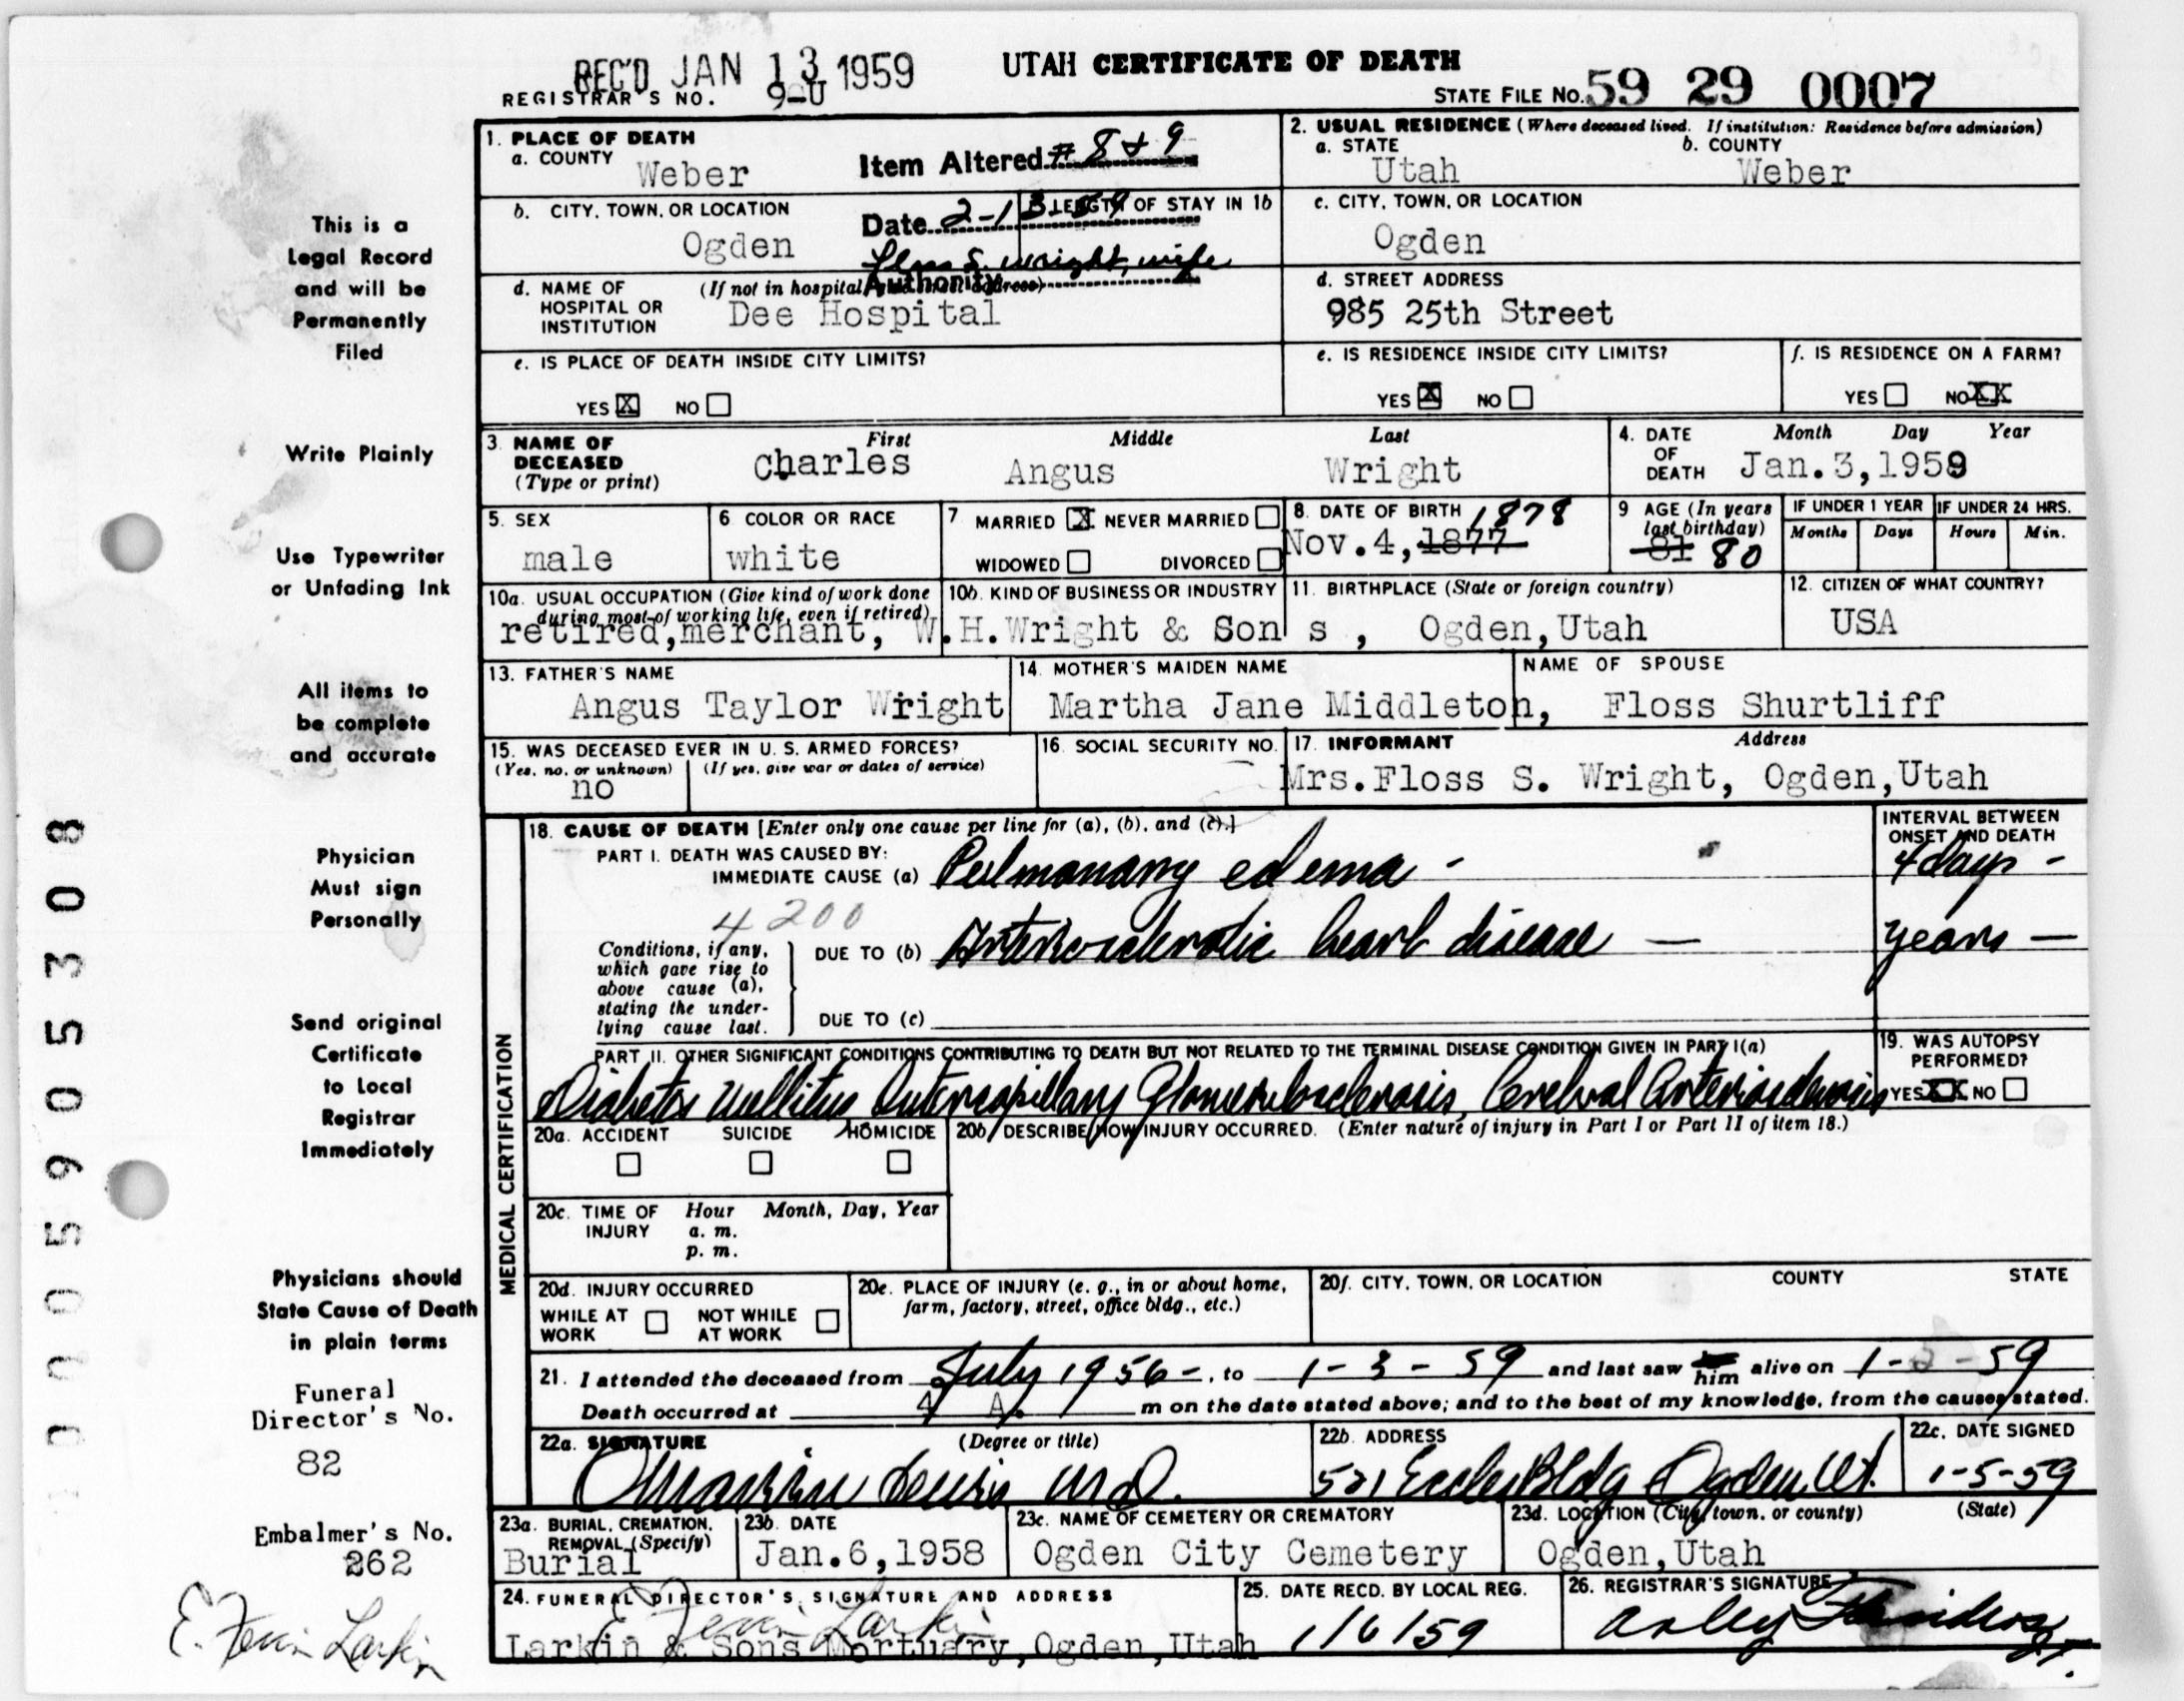 REC'D JAN 13 1959
UTAH CERTIFICATE OF DEATH
REGISTRAR'S NO. 9-U
STATE FILE No. 59 29 0007
1. PLACE OF DEATH
a. COUNTY
Weber
Item Altered # 8 & 9
2. USUAL RESIDENCE (Where deceased lived. If institution: Residence before admission)
a. STATE
Utah
b. COUNTY
Weber
b. CITY, TOWN, OR LOCATION
Ogden
Date 2-13-59
LENGTH OF STAY IN 1b
c. CITY, TOWN, OR LOCATION
Ogden
Floss S. Wright, wife
Authority
d. NAME OF HOSPITAL OR INSTITUTION
(If not in hospital, address)
Dee Hospital
d. STREET ADDRESS
985 25th Street
e. IS PLACE OF DEATH INSIDE CITY LIMITS?
YES X NO
e. IS RESIDENCE INSIDE CITY LIMITS?
YES X NO
f. IS RESIDENCE ON A FARM?
YES NO XX
3. NAME OF DECEASED
(Type or print)
First Middle Last
Charles Angus Wright
4. DATE OF DEATH
Month Day Year
Jan.3,1959
5. SEX
male
6 COLOR OR RACE
white
7 MARRIED X NEVER MARRIED
WIDOWED DIVORCED
8. DATE OF BIRTH
1878
Nov.4,1877
9 AGE (In years last birthday)
81 80
IF UNDER 1 YEAR
Months Days
IF UNDER 24 HRS.
Hours Min.
10a. USUAL OCCUPATION (Give kind of work done during most of working life, even if retired)
10b. KIND OF BUSINESS OR INDUSTRY
11. BIRTHPLACE (State or foreign country)
12. CITIZEN OF WHAT COUNTRY?
retired,merchant, W.H.Wright & Son s , Ogden,Utah
USA
13. FATHER'S NAME
Angus Taylor Wright
14. MOTHER'S MAIDEN NAME
Martha Jane Middleton,
NAME OF SPOUSE
Floss Shurtliff
15. WAS DECEASED EVER IN U. S. ARMED FORCES?
(Yes, no, or unknown) (If yes, give war or dates of service)
no
16. SOCIAL SECURITY NO.
17. INFORMANT Address
Mrs.Floss S. Wright, Ogden,Utah
MEDICAL CERTIFICATION
18. CAUSE OF DEATH [Enter only one cause per line for (a), (b), and (c).]
INTERVAL BETWEEN ONSET AND DEATH
PART I. DEATH WAS CAUSED BY:
IMMEDIATE CAUSE (a) Pulmonary edema -
4 days -
4200
Conditions, if any, which gave rise to above cause (a), stating the underlying cause last.
DUE TO (b) Arteriosclerotic heart disease —
years —
DUE TO (c)
PART II. OTHER SIGNIFICANT CONDITIONS CONTRIBUTING TO DEATH BUT NOT RELATED TO THE TERMINAL DISEASE CONDITION GIVEN IN PART I(a)
Diabetes Mellitus Intercapillary Glomerulosclerosis, Cerebral Arteriosclerosis
19. WAS AUTOPSY PERFORMED?
YES XX NO
20a. ACCIDENT SUICIDE HOMICIDE
20b. DESCRIBE HOW INJURY OCCURRED. (Enter nature of injury in Part I or Part II of item 18.)
20c. TIME OF INJURY
Hour Month, Day, Year
a. m.
p. m.
20d. INJURY OCCURRED
WHILE AT WORK NOT WHILE AT WORK
20e. PLACE OF INJURY (e. g., in or about home, farm, factory, street, office bldg., etc.)
20f. CITY, TOWN, OR LOCATION COUNTY STATE
21. I attended the deceased from July 1956 -, to 1-3-59 and last saw him alive on 1-3-59
Death occurred at 4 A. m on the date stated above; and to the best of my knowledge, from the causes stated.
22a. SIGNATURE (Degree or title)
M.D.
22b. ADDRESS
521 Eccles Bldg Ogden, Ut.
22c. DATE SIGNED
1-5-59
23a. BURIAL, CREMATION, REMOVAL (Specify)
Burial
23b. DATE
Jan.6,1958
23c. NAME OF CEMETERY OR CREMATORY
Ogden City Cemetery
23d. LOCATION (City, town, or county) (State)
Ogden,Utah
24. FUNERAL DIRECTOR'S SIGNATURE AND ADDRESS
Larkin & Sons Mortuary,Ogden,Utah
25. DATE RECD. BY LOCAL REG.
1/6/59
26. REGISTRAR'S SIGNATURE
This is a
Legal Record
and will be
Permanently
Filed
Write Plainly
Use Typewriter
or Unfading Ink
All items to
be complete
and accurate
Physician
Must sign
Personally
Send original
Certificate
to Local
Registrar
Immediately
Physicians should
State Cause of Death
in plain terms
Funeral
Director's No.
82
Embalmer's No.
262
E. Larkin